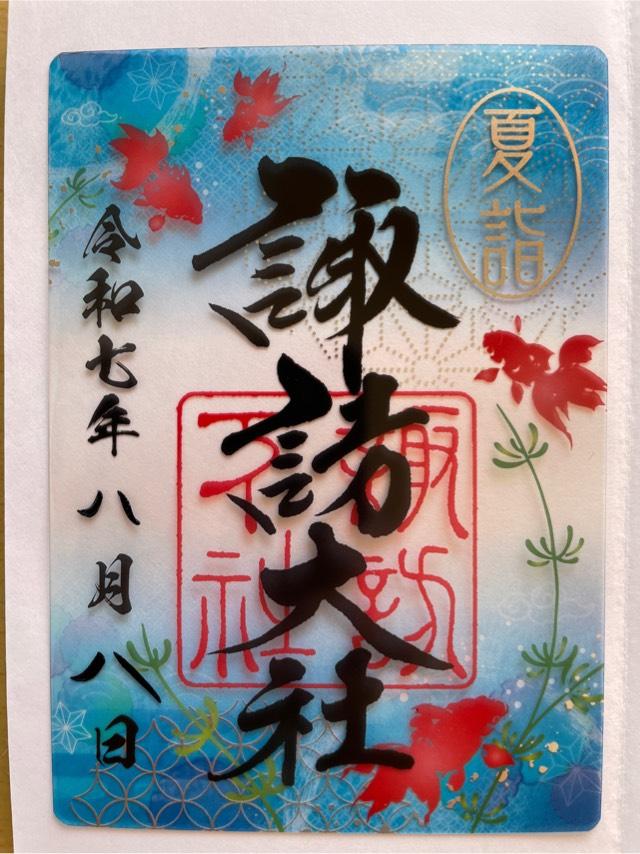 夏詣
諏訪大社
諏訪
社
令和七年八月八日